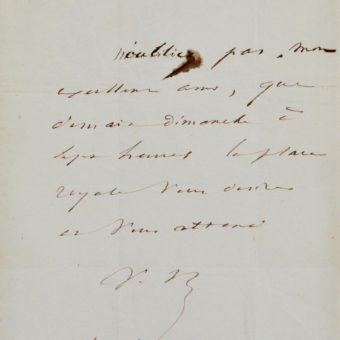 n'oubliez pas, mon
excellent ami, que
demain dimanche à
sept heures la place
royale vous désire
et vous attend
V. H.